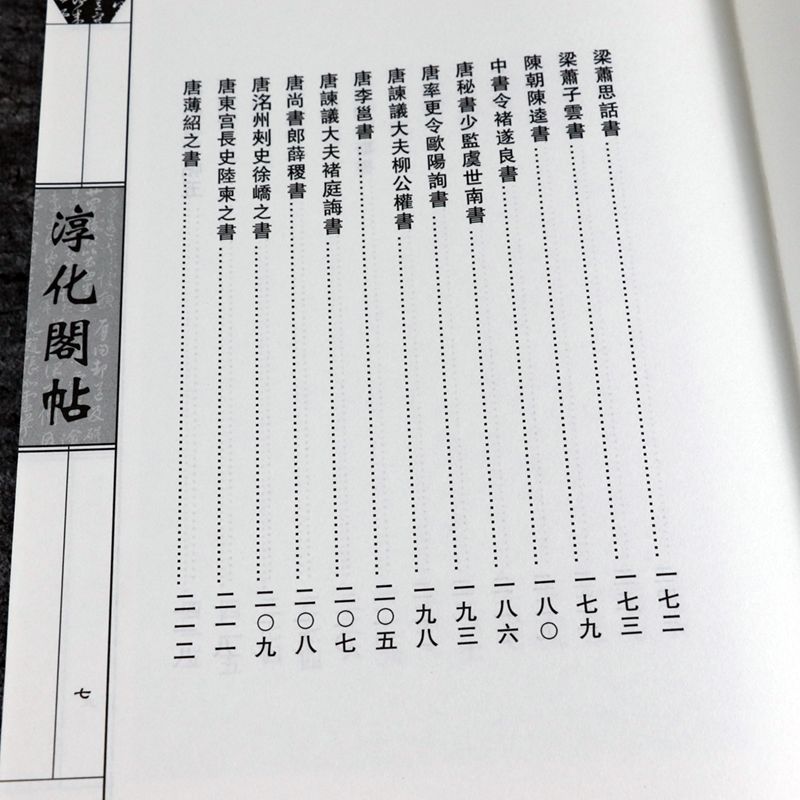 梁蕭思話書……一七二
梁蕭子雲書……一七三
陳朝陳逵書……一七九
中書令褚遂良書……一八〇
唐秘書少監虞世南書……一八六
唐率更令歐陽詢書……一九三
唐諫議大夫柳公權書……一九八
唐李邕書……二〇五
唐諫議大夫褚庭誨書……二〇七
唐尚書郎薛稷書……二〇八
唐洺州刺史徐嶠之書……二〇九
唐東宫長史陸柬之書……二一一
唐薄紹之書……二一二
淳化閣帖
七